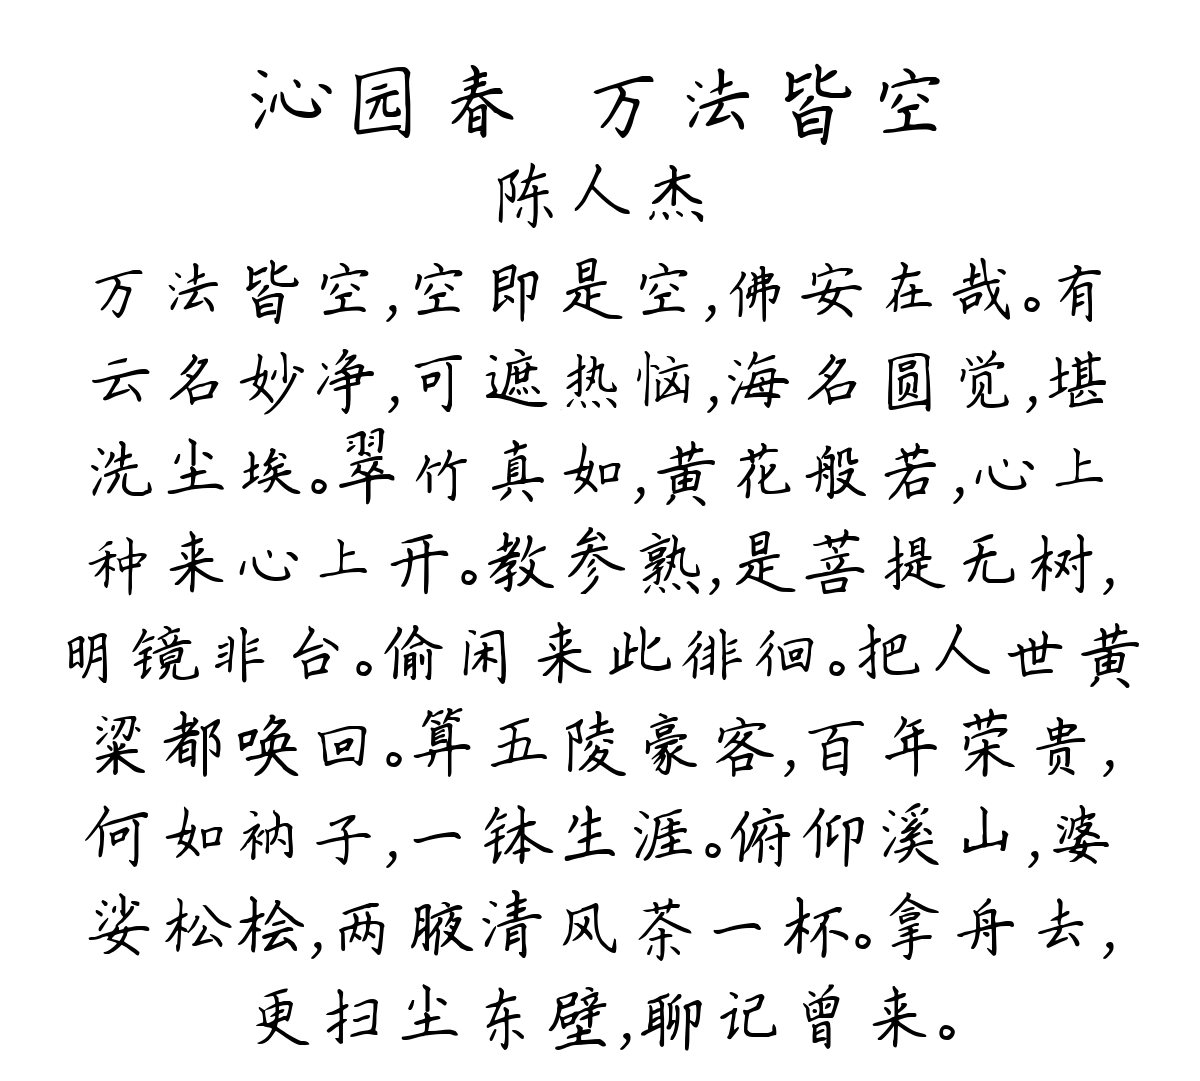 沁园春 万法皆空
陈人杰
万法皆空,空即是空,佛安在哉。有
云名妙净,可遮热恼,海名圆觉,堪
洗尘埃。翠竹真如,黄花般若,心上
种来心上开。教参熟,是菩提无树,
明镜非台。偷闲来此徘徊。把人世黄
粱都唤回。算五陵豪客,百年荣贵,
何如衲子,一钵生涯。俯仰溪山,婆
娑松桧,两腋清风茶一杯。拿舟去,
更扫尘东壁,聊记曾来。